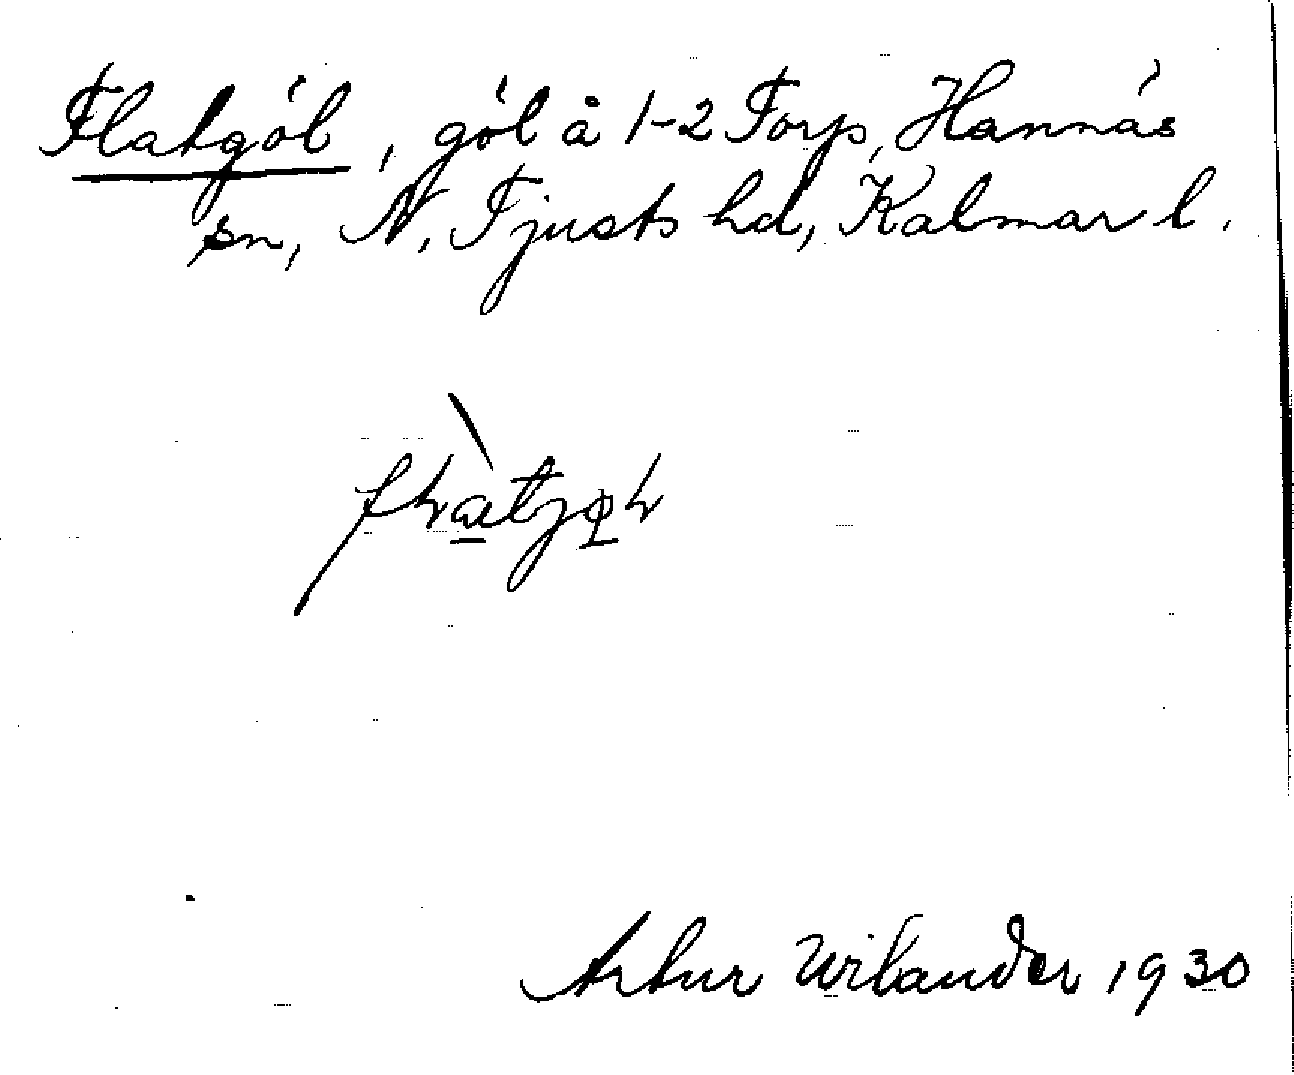 Flatgöl, göl å 1-2 Torp, Hannäs
sn, N. Tjusts hd, Kalmar l.
Artur Wilander 1930